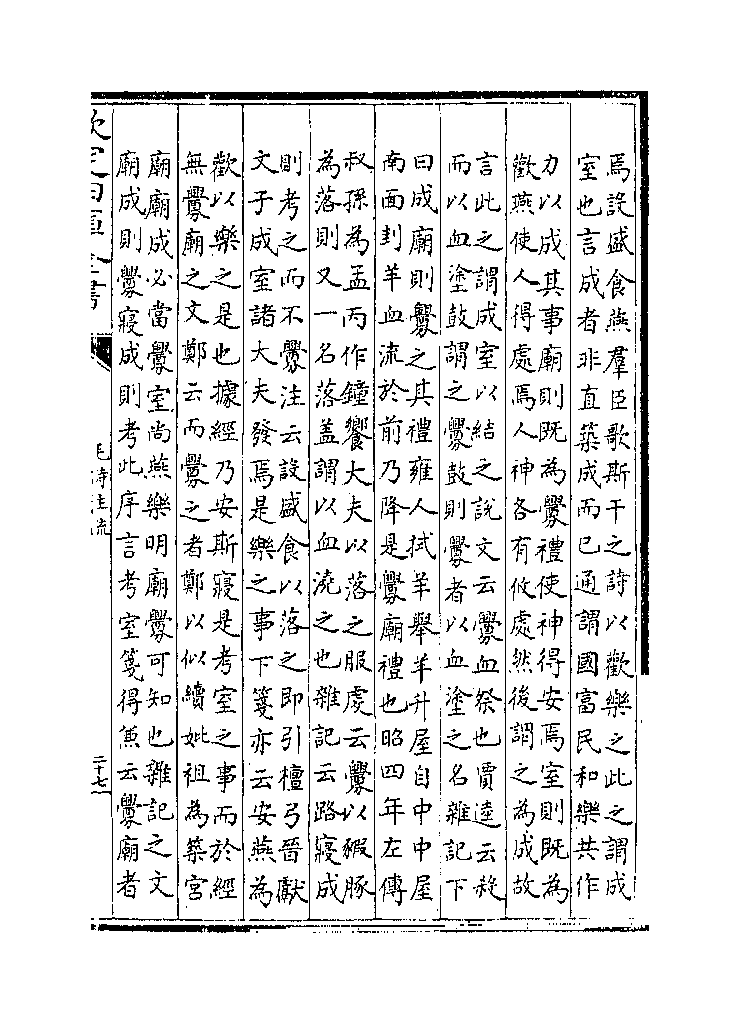 焉設盛食燕羣臣歌斯干之詩以歡樂之此之謂成
室也言成者非直築成而已通謂國富民和樂共作
力以成其事廟則既為釁禮使神得安焉室則既為
歡燕使人得處焉人神各有攸處然後謂之為成故
言此之謂成室以結之說文云釁血祭也賈逵云殺
而以血塗鼓謂之釁鼓則釁者以血塗之名雜記下
曰成廟則釁之其禮雍人拭羊舉羊升屋自中中屋
南面刲羊血流於前乃降是釁廟禮也昭四年左傳
叔孫為孟丙作鐘饗大夫以落之服虔云釁以豭豚
為落則又一名落盖謂以血澆之也雜記云路寢成
則考之而不釁注云設盛食以落之即引檀弓晉獻
文子成室諸大夫發焉是樂之事下箋亦云安燕為
歡以樂之是也據經乃安斯寢是考室之事而於經
無釁廟之文鄭云而釁之者鄭以似續妣祖為築宮
廟廟成必當釁室尚燕樂明廟釁可知也雜記之文
廟成則釁寢成則考此序言考室箋得兼云釁廟者
欽定四庫全書
毛詩注疏
二十七